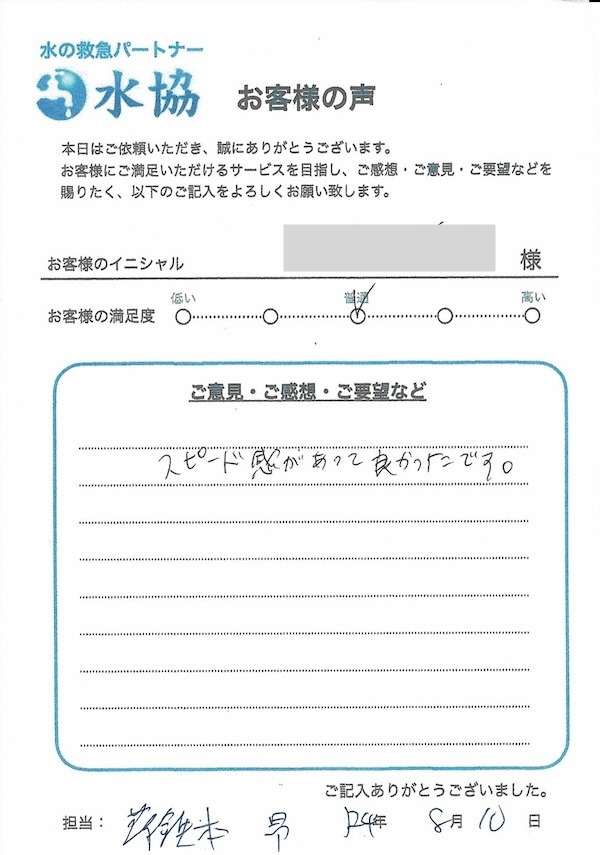 水の救急パートナー
水協 お客様の声
本日はご依頼いただき、誠にありがとうございます。
お客様にご満足いただけるサービスを目指し、ご感想・ご意見・ご要望などを
賜りたく、以下のご記入をよろしくお願い致します。
お客様のイニシャル 様
低い 普通 高い
お客様の満足度
ご意見・ご感想・ご要望など
スピード感があって良かったです。
ご記入ありがとうございました。
担当: 昇 年 8月 10日